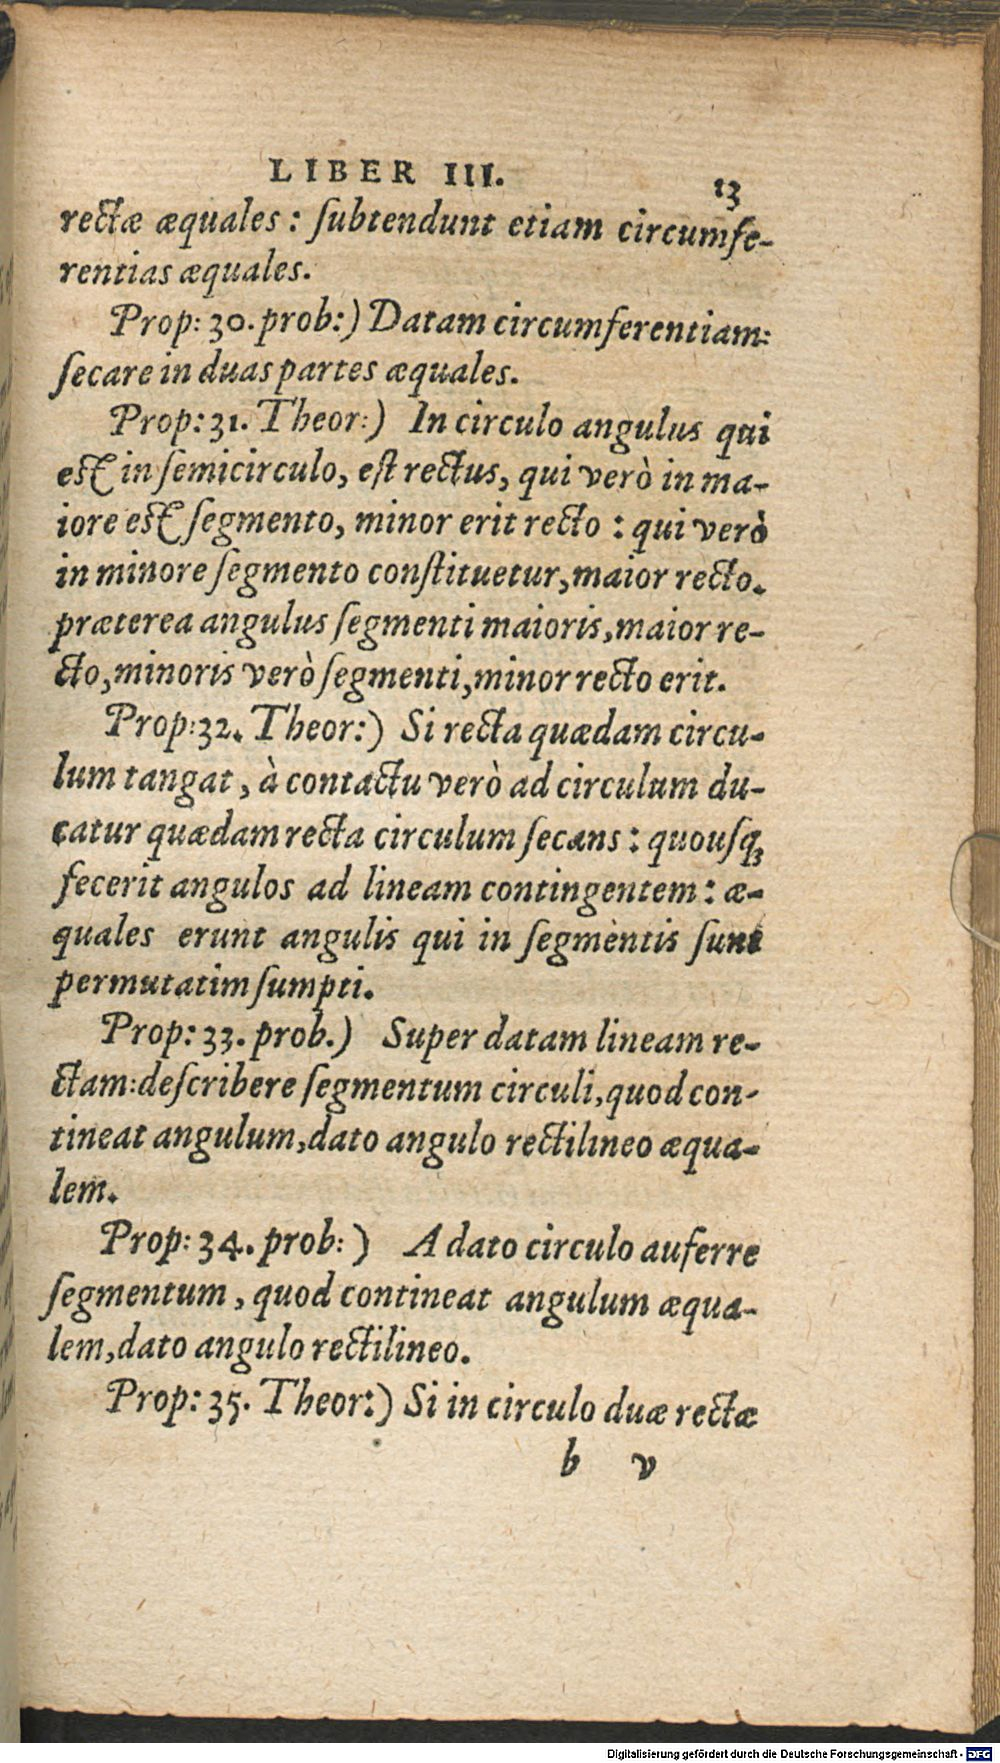 LIBER III.
13
rectæ æquales : ſubtendunt etiam circumfe-
rentias æquales.
Prop: 30. prob:) Datam circumferentiam:
ſecare in duas partes æquales.
Prop: 31. Theor:) In circulo angulus qui
eſt in ſemicirculo, eſt rectus, qui verò in ma-
iore eſt ſegmento, minor erit recto : qui verò
in minore ſegmento conſtituetur, maior recto.
præterea angulus ſegmenti maioris, maior re-
cto, minoris verò ſegmenti, minor recto erit.
Prop: 32. Theor:) Si recta quædam circu-
lum tangat, à contactu verò ad circulum du-
catur quædam recta circulum ſecans : quouſq;
fecerit angulos ad lineam contingentem : æ-
quales erunt angulis qui in ſegmèntis ſunt
permutatim ſumpti.
Prop: 33. prob.) Super datam lineam re-
ctam: deſcribere ſegmentum circuli, quod con-
tineat angulum, dato angulo rectilineo æqua-
lem.
Prop: 34. prob: ) A dato circulo auferre
ſegmentum, quod contineat angulum æqua-
lem, dato angulo rectilineo.
Prop: 35. Theor:) Si in circulo duæ rectæ
b v
Digitalisierung gefördert durch die Deutsche Forschungsgemeinschaft - DFG